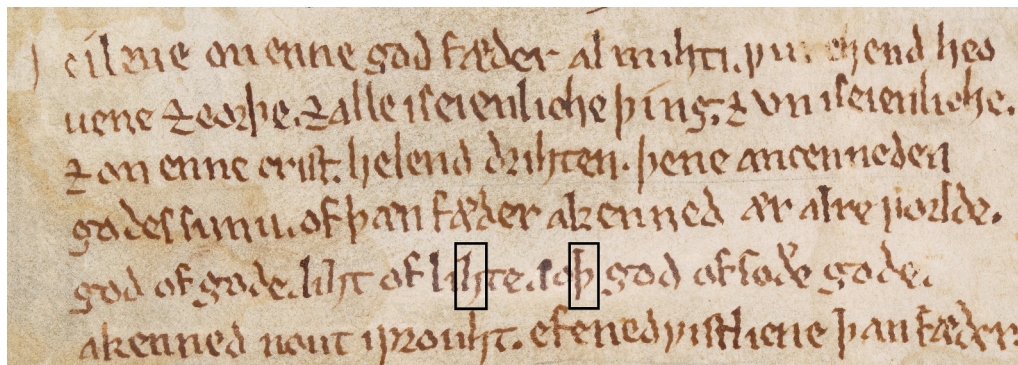 ileue on enne god fæder almihti. ƿurchend heo
uene ⁊ eorþe. ⁊ alle iseienliche þing. ⁊ vniseienliche.
⁊ on enne crist. helend drihten. þene ancenneden
godes sunu. of þan fæder akenned ær alre ƿorlde.
god of gode. liht of lihte. soþ god of soðe gode.
akenned nout iƿrouht. efenedƿistliene þan fæder.